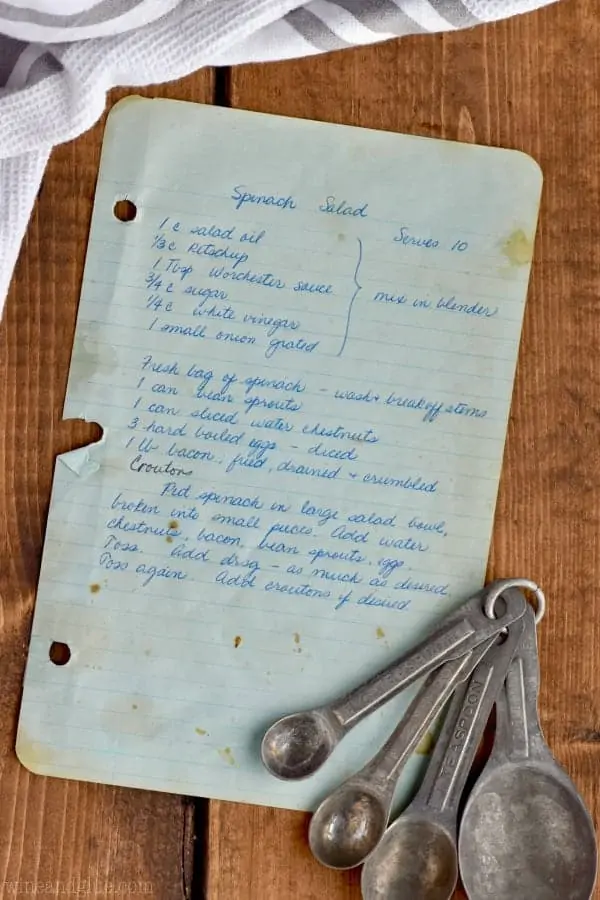 Spinach Salad
Serves 10
1 c salad oil
1/3 c Ketchup
1 Tbsp Worchester sauce
3/4 c sugar
1/4 c white vinegar
1 small onion grated
mix in blender
Fresh bag of spinach - wash & break off stems
1 can bean sprouts
1 can sliced water chestnuts
3 hard boiled eggs - diced
1 lb bacon, fried, drained & crumbled
Croutons
Put spinach in large salad bowl,
broken into small pieces. Add water
chestnuts, bacon, bean sprouts, eggs.
Toss. Add drsg - as much as desired
Toss again. Add croutons if desired
TEASPOON
wineandglue.com